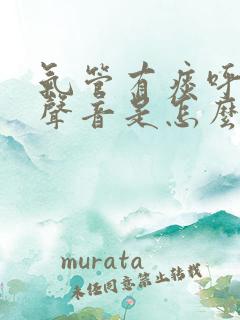 氣管有痰呼
聲音是怎麼
murata
未经同意禁止转载